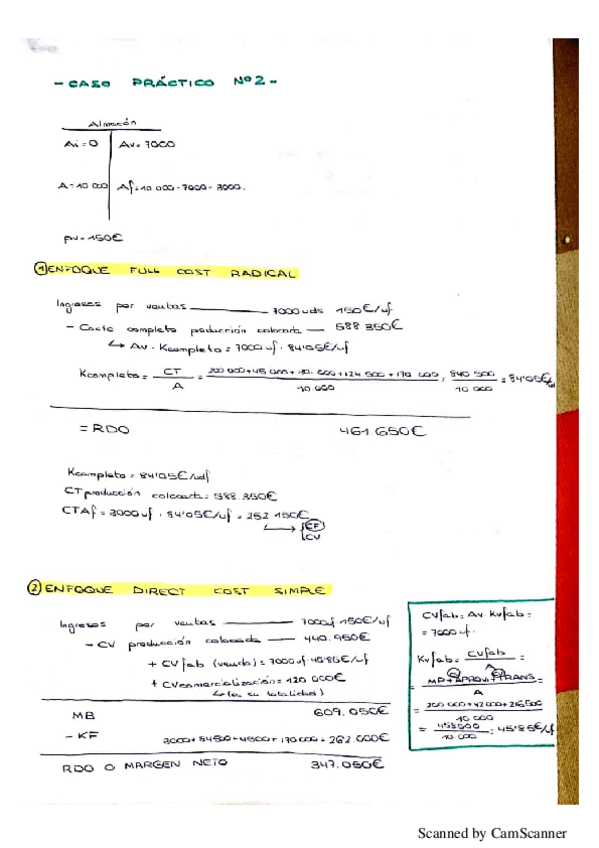 - CASO PRÁCTICO Nº2 -
Almacén
Ai = 0 Av = 7000
A = 10 000 Af = 10 000 - 7000 = 3000.
pv = 150€
① ENFOQUE FULL COST RADICAL
Ingresos por ventas 7000 uds 150€/uf
- Coste completo producción colocada 588 350€
↳ Av · Kcompleto = 7000 uf · 84'05€/uf
Kcompleto = CT / A = 840 500 / 10 000 = 84'05€/
= RDO 461.650€
Kcompleto = 84'05€/udf
CT producción colocada = 588.350€
CTAf = 3000 uf · 84'05€/uf = 252 150€
CF
CV
② ENFOQUE DIRECT COST SIMPLE
Ingresos por ventas 7000uf 150€/uf
- CV producción colocada 440.950€
+ CVfab (vendo) = 7000uf · 45'85€/uf
+ CVcomercialización = 120 000€
↳ (en su totalidad)
MB 609.050€
- KF 3000 + 84500 + 4500 + 170 000 = 262.000€
RDO O MARGEN NETO 347.050€
CVfab = Av · Kvfab =
= 7000 uf ·
Kvfab = CVfab / A =
= MP + APROVI + TRANS / A
= 200 000 + 42 000 + 216 500 / 10 000
= 458500 / 10.000 = 45'85€/uf
Scanned by CamScanner